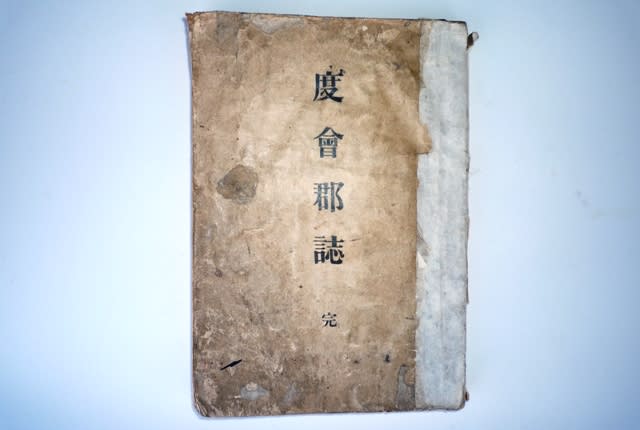 度會郡誌
完